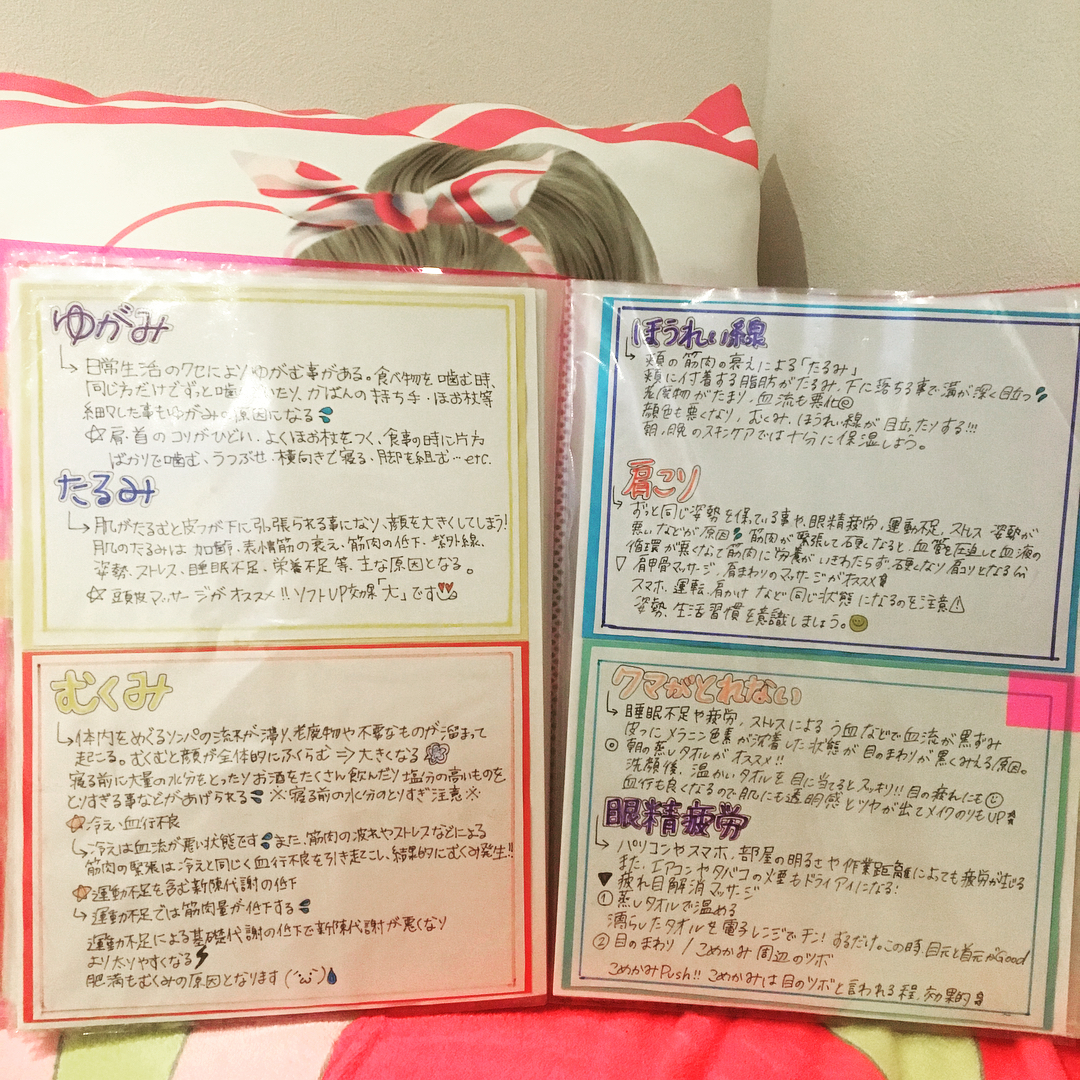 ゆがみ
↳日常生活のクセによりゆがむ事がある。食べ物を噛む時、
同じ方だけでずっと噛 いたり、かばんの持ち手・ほお杖等
細々した事もゆがみの原因になる
☆肩・首のコリがひどい・よくほお杖をつく、食事の時に片方
ばかりで噛む、うつぶせ・横向きで寝る、脚を組む…etc.
たるみ
↳肌がたるむと皮フが下に引っ張られる事になり、顔を大きくしてしまう!
肌のたるみは 加齢・表情筋の衰え・筋肉の低下・紫外線、
姿勢、ストレス、睡眠不足、栄養不足 等、主な原因となる。
☆頭皮マッサージがオススメ!!ソフトUP効果「大」です
むくみ
↳体内をめぐるリンパの流れが滞り、老廃物や不要なものが溜まって
起こる。むくむと顔が全体的にふくらむ⇒大きくなる
寝る前に大量の水分をとったりお酒をたくさん飲んだり塩分の高いものを
とりすぎる事などがあげられる ※寝る前の水分のとりすぎ注意※
☆冷え・血行不良
↳冷えは血流が悪い状態です また、筋肉の疲れやストレスなどによる
筋肉の緊張は冷えと同じく血行不良を引き起こし、結果的にむくみ発生!!
☆運動不足を含む新陳代謝の低下
↳運動不足では筋肉量が低下する
運動不足による基礎代謝の低下で新陳代謝が悪くなり
より太りやすくなる
肥満もむくみの原因となります(´・ω・`)
ほうれい線
↳頬の筋肉の衰えによる「たるみ」
頬に付着する脂肪がたるみ、下に落ちる事で溝が深く目立つ
老廃物がたまり、血流も悪化
顔色も悪くなり、むくみ、ほうれい線が目立ったりする!!!
朝、晩のスキンケアでは十分に保湿しよう。
肩こり
↳ずっと同じ姿勢を保っている事や、眼精疲労、運動不足、ストレス 姿勢が
悪いなどが原因 筋肉が緊張して硬くなると、血管を圧迫して血液の
循環が悪くなって筋肉に栄養がいきわたらず、硬くなり肩コリとなる
▽肩甲骨マッサージ、肩まわりのマッサージがオススメ
スマホ、運転、肩かけなど同じ状態になるのを注意⚠
姿勢、生活習慣を意識しましょう。
クマがとれない
↳睡眠不足や疲労、ストレスによるう血などで血流が黒ずみ
皮フにメラニン色素が沈着した状態が目のまわりが黒くみえる原因。
◎朝の蒸しタオルがオススメ!!
洗顔後、温かいタオルを目に当てるとスッキリ!!目の疲れにも
血行も良くなるので肌にも透明感とツヤが出てメイクのりもUP
眼精疲労
↳パソコンやスマホ、部屋の明るさや作業距離によっても疲労が生じる
また、エアコンやタバコの煙もドライアイになる!
▼疲れ目解消マッサージ
①蒸しタオルで温める
濡らしたタオルを電子レンジでチン!するだけ。この時、目元と首元がGood
②目のまわり/こめかみ周辺のツボ
こめかみPush!!こめかみは目のツボと言われる程、効果的